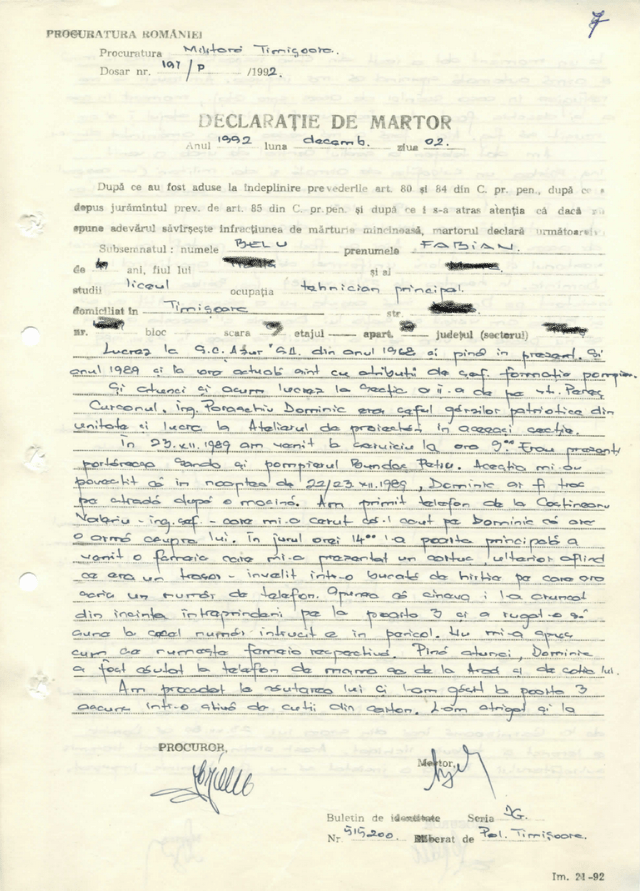 7
PROCURATURA ROMÂNIEI
Procuratura Militară Timișoara.
Dosar nr. 197/P /1992.
DECLARAȚIE DE MARTOR
Anul 1992 luna decemb. ziua 02.
După ce au fost aduse la îndeplinire prevederile art. 80 și 84 din C. pr. pen., după ce
depus jurămîntul prev. de art. 85 din C. pr. pen. și după ce i s-a atras atenția că dacă nu
spune adevărul săvîrșește infracțiunea de mărturie mincinoasă, martorul declară următoarele
Subsemnatul : numele BELU prenumele FABIAN.
de ani, fiul lui și al
studii liceul ocupația tehnician principal.
domiciliat în Timișoara str.
nr. bloc scara etajul — apart. județul (sectorul)
Lucrez la S.C. Azur SA. din anul 1968 și pînă în prezent. Și
anul 1989 și la ora actuală sînt cu atribuții de șef formație pompieri.
Și atunci și acum lucrez la Secția a II-a de pe str.
Curcanul. ing. Paraschiv Dominic era șeful gărzilor patriotice din
unitate și lucra la Atelierul de proiectări în aceeași secție.
În 23.XII.1989 am venit la serviciu la ora 9°°. Erau prezenți
portăreasa Sanda și pompierul Bundaș Petru. Aceștia mi-au
povestit că în noaptea de 22/23.XII.1989, Dominic ar fi tras
pe stradă după o mașină. Am primit telefon de la Costineanu
Valeriu - ing. șef - care mi-a cerut să-l caut pe Dominic că are
o armă asupra lui. În jurul orei 14°° la poarta principală a
venit o femeie care mi-a prezentat un cartuș, ulterior aflînd
că era un trasor - învelit într-o bucată de hîrtie pe care era
scris un număr de telefon. Spunea că cineva i l-a aruncat
din incinta întreprinderii pe la poarta 3 și a rugat-o să
sune la acel număr întrucît e în pericol. Nu mi-a spus
cum se numește femeia respectivă. Pînă atunci, Dominic
a fost căutat la telefon de mama sa de la Arad și de soția lui.
Am procedat la căutarea lui și l-am găsit la poarta 3
ascuns într-o stivă de cutii din carton. L-am strigat și la
PROCUROR,
Martor,
Buletin de identitate Seria
Nr 515200. Eliberat de Pol. Timișoara.
Im. 21-92